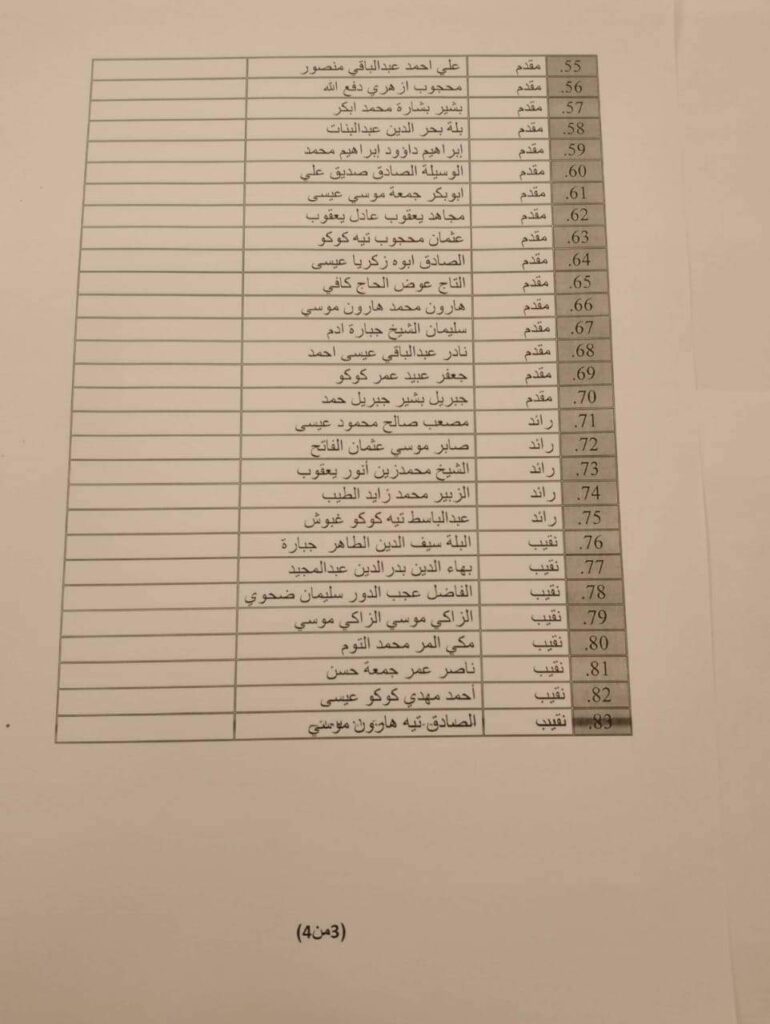 .55 مقدم علي احمد عبدالباقي منصور
.56 مقدم محجوب ازهري دفع الله
.57 مقدم بشير بشارة محمد ابكر
.58 مقدم بلة بحر الدين عبدالبنات
.59 مقدم إبراهيم داؤود إبراهيم محمد
.60 مقدم الوسيلة الصادق صديق علي
.61 مقدم ابوبكر جمعة موسي عيسى
.62 مقدم مجاهد يعقوب عادل يعقوب
.63 مقدم عثمان محجوب تيه كوكو
.64 مقدم الصادق ابوه زكريا عيسى
.65 مقدم التاج عوض الحاج كافي
.66 مقدم هارون محمد هارون موسي
.67 مقدم سليمان الشيخ جبارة ادم
.68 مقدم نادر عبدالباقي عيسى احمد
.69 مقدم جعفر عبيد عمر كوكو
.70 مقدم جبريل بشير جبريل حمد
.71 رائد مصعب صالح محمود عيسى
.72 رائد صابر موسي عثمان الفاتح
.73 رائد الشيخ محمدزين أنور يعقوب
.74 رائد الزبير محمد زايد الطيب
.75 رائد عبدالباسط تيه كوكو غبوش
.76 نقيب البلة سيف الدين الطاهر جبارة
.77 نقيب بهاء الدين بدرالدين عبدالمجيد
.78 نقيب الفاضل عجب الدور سليمان ضحوي
.79 نقيب الزاكي موسي الزاكي موسي
.80 نقيب مكي المر محمد التوم
.81 نقيب ناصر عمر جمعة حسن
.82 نقيب أحمد مهدي كوكو عيسى
.83 نقيب الصادق تيه هارون موسي
(3من4)